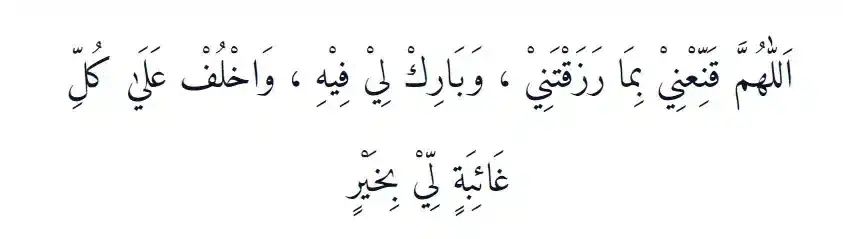 اَللّٰهُمَّ قَنِّعْنِيْ بِمَا رَزَقْتَنِيْ ، وَبَارِكْ لِيْ فِيْهِ ، وَاخْلُفْ عَلَىٰ كُلِّ
غَائِبَةٍ لِّيْ بِخَيْرٍ